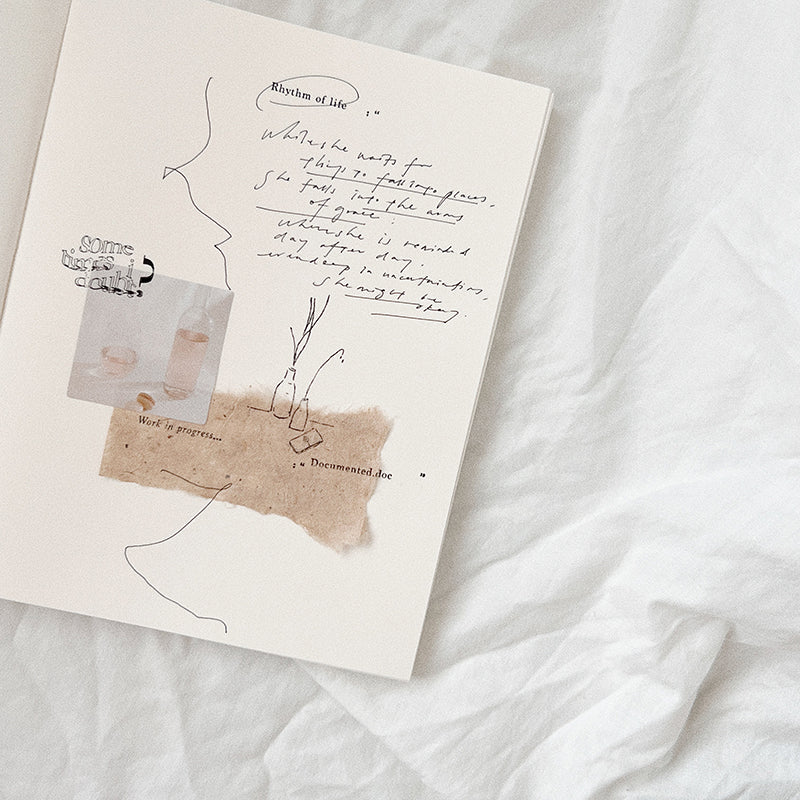 Rhythm of life
; “
While she waits for
things to fall into places,
She falls into the arms
of grace;
Where she is reminded
day after day,
even deep in uncertainties,
She might be
okay.
some
times i
doubt
Work in progress...
; “ Documented.doc ”